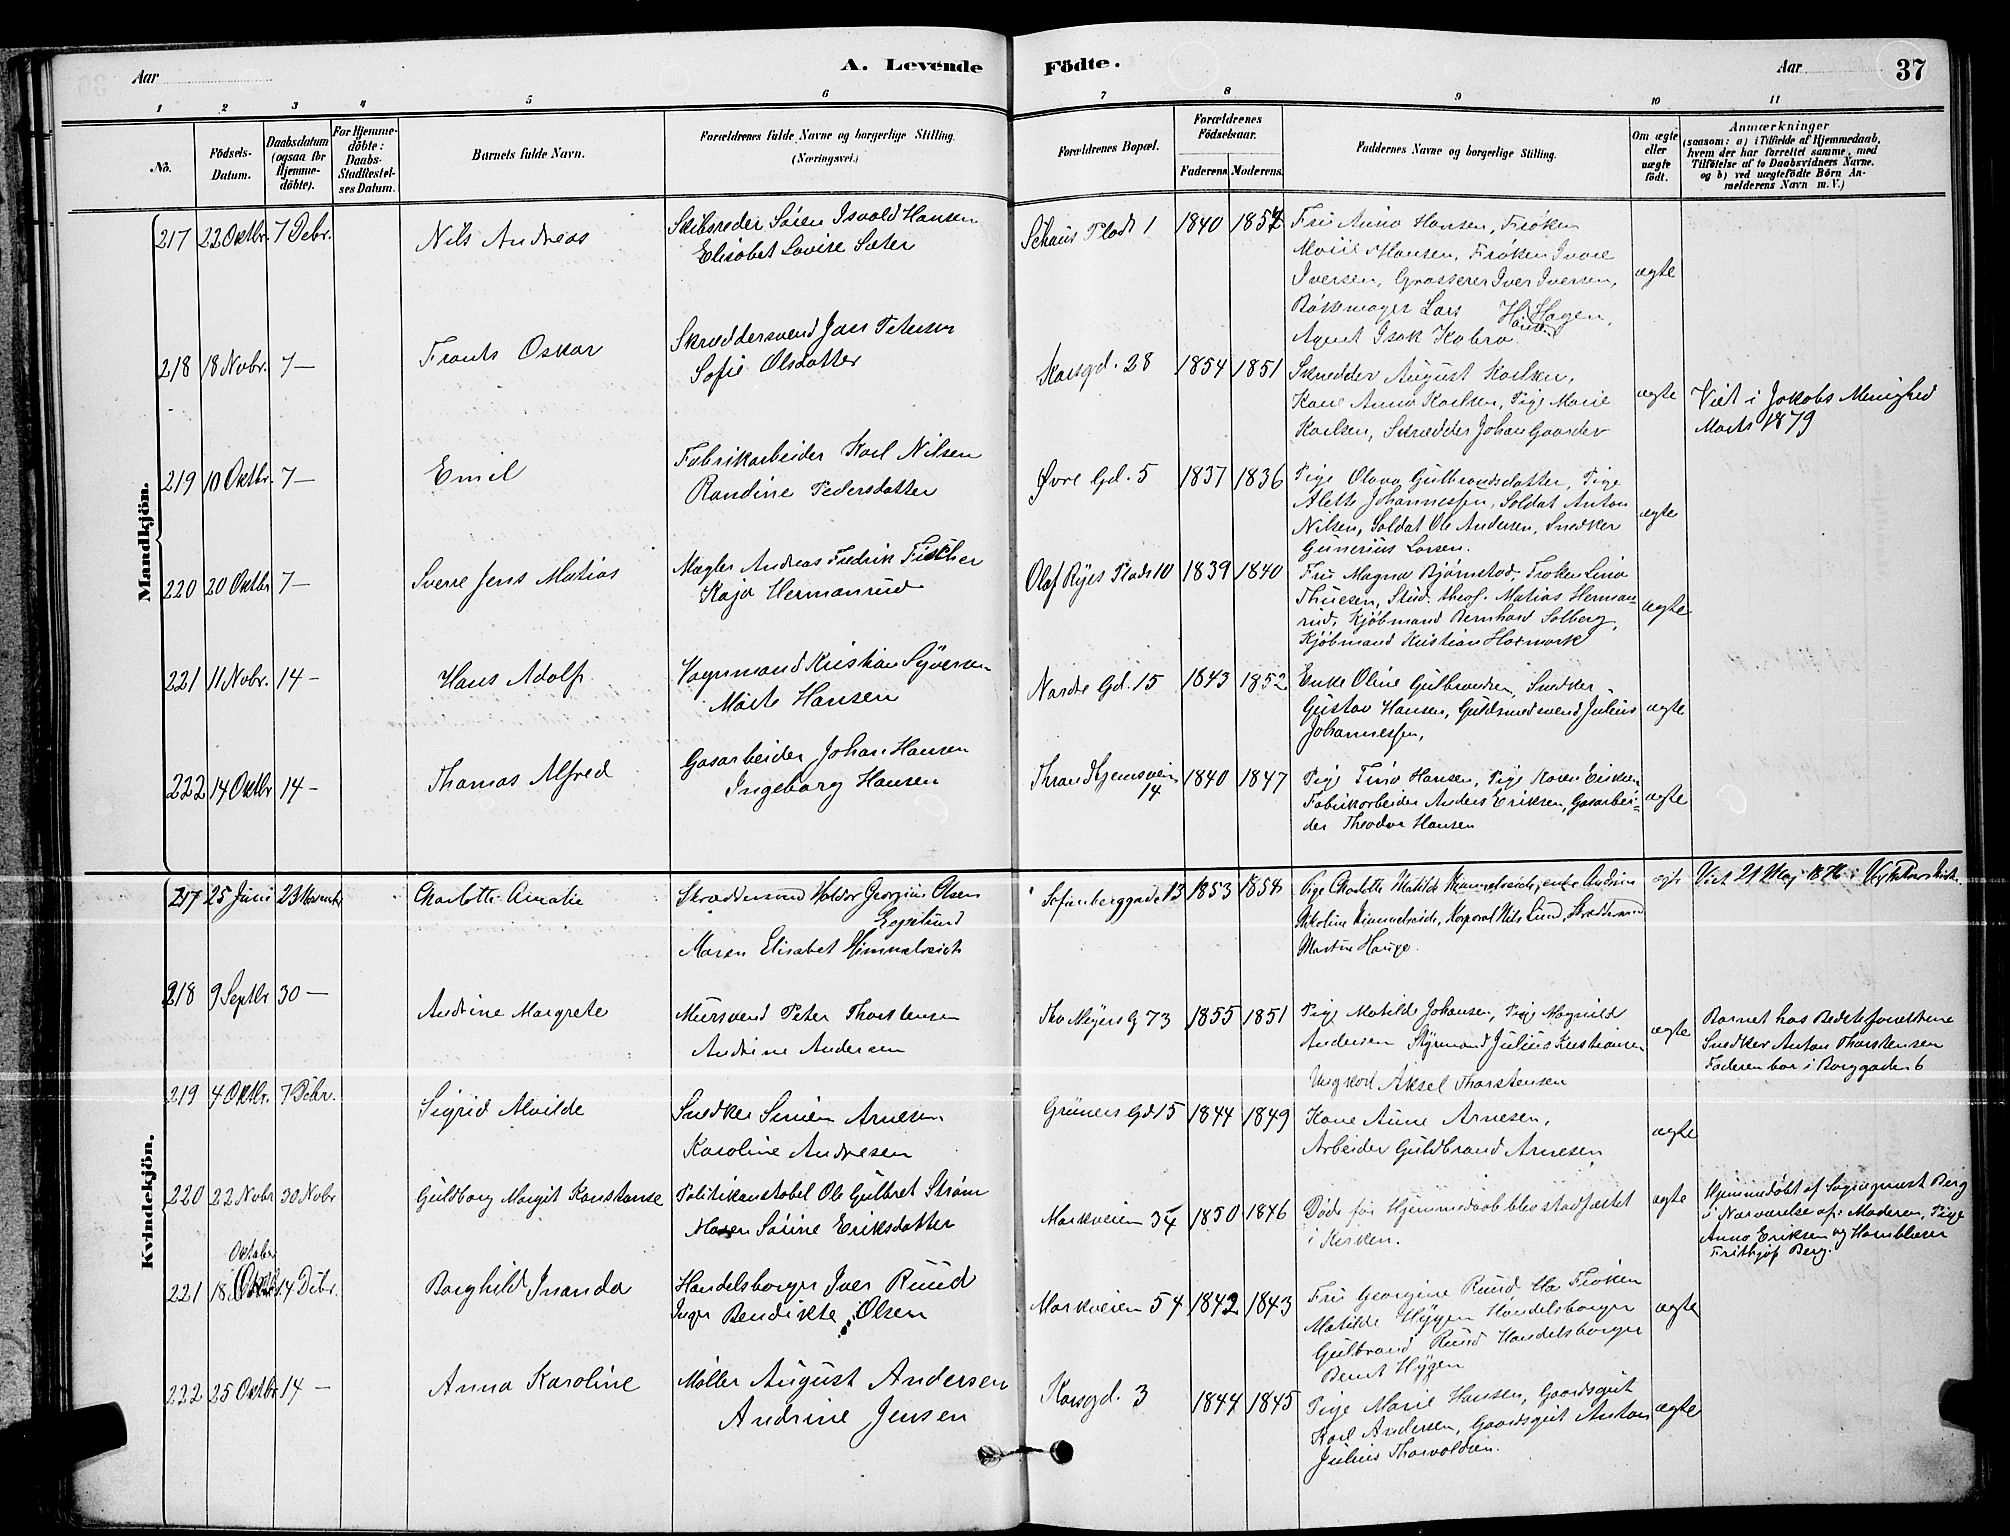 Aar
A. Levende Födte.
Aar
37
1 2 3 4 5 6 7 8 9 10 11
No.
Födsels-Datum.
Daabsdatum (ogsaa for Hjemme-döbte).
For Hjemme-döbte: Daabs-Stadfæstel-ses Datum.
Barnets fulde Navn.
Forældrenes fulde Navne og borgerlige Stilling. (Næringsvei.)
Forældrenes Bopæl.
Forældrenes Födselsaar.
Faderens Moderens
Faddernes Navne og borgerlige Stilling.
Om ægte eller uægte födt.
Anmærkninger
(saasom: a) i Tilfælde af Hjemmedaab,
hvem der har forrettet samme, med
Tilföielse af to Daabsvidners Navne.
og b) ved uægtefödte Börn An-
melderens Navn m. V.)
Mandkjön.
217 22 Oktbr. 7 Debr. Nils Andreas
Skibsreder Sören Isvald Hansen
Elisabet Lovise Sæter
Schous Plads 1 1840 1857
Fru Anna Hansen, Frøken
Marie Hansen, Frøken Inare
Iversen, Grosserer Iver Iversen,
Bøkmager Lars Hansen Hagen,
Agent Isak Kobro
ægte
218 18 Nobr. 7 — Frants Oskar
Skræddersvend Jan Petersen
Sofie Olsdatter
Korsgd. 28 1854 1851
Skrædder August Karlsen,
Kone Anna Karlsen, Pige Marie
Karlsen, Skrædder Johan Gaarder
ægte
Viet i Jakobs Menighed
Marts 1879
219 10 Oktbr. 7 — Emil
Fabrikarbeider Karl Nilsen
Randine Pedersdatter
Øvre Gd. 5 1837 1836
Pige Olava Gulbrandsdatter, Pige
Alette Johannessen, Soldat Anton
Nilsen, Soldat Ole Andersen, Snedker
Gunerius Larsen.
ægte
220 20 Oktbr 7 — Sverre Jens Matias
Mægler Andreas Fredrik Fischer
Kaja Hermanrud
Olaf Ryes Plads 10 1839 1840
Fru Magna Bjørnstad, Frøken Lina
Thuesen, Stud. theol. Matias Herman-
rud, Kjøbmand Bernhard Solberg,
Kjøbmand Kristian Hormork
ægte
221 11 Nobr. 14 — Hans Adolf
Vognmand Kristian Syversen
Marte Hansen
Nordre Gd. 15 1843 1852
Enke Oline Gulbrandsen, Snedker
Gustav Hansen, Guldsmedsvend Julius
Johannessen,
ægte
222 14 Oktbr 14 — Thomas Alfred
Gasarbeider Johan Hansen
Ingeborg Hansen
Thrandhjemsveien 14 1840 1847
Pige Tina Hansen, Pige Karen Eriksen
Fabrikarbeider Anders Eriksen, Gasarbei-
der Theodor Hansen
ægte
Kvindekjön.
217 25 Juni 23 Novembr Charlotte Amalie
Skræddersvend Haldor Georgius Olsen
Engelund
Maren Elisabet Himmelreich
Sofienberggade 13 1853 1854
Pige Charlotte Matilde Himmelreich, enke Andrine
Nikoline Himmelreich, Korporal Nils Lund, Skræddersvend
Martin Hauge.
ægte
Viet 21 Maj 1876 i
218 9 Septbr 30 — Andrine Margrete
Mursvend Peter Thorstensen
Andrine Andersen
Thv Meyers G 73 1855 1851
Pige Matilde Johansen, Pige Magnild
Andersen Styrmand Julius Kristiansen
Ungkarl Aksel Thorstensen
ægte
Barnet hos Bedsteforældrene
Snedker Anton Thorstensen
Faderen bor i Borggaden 6
219 4 Oktbr. 7 Debr. Sigrid Alvilde
Snedker Simen Arnesen
Karoline Andresen
Grüners Gd 15 1844 1849
Kone Anne Arnesen,
Arbeider Guldbrand Arnesen
ægte
220 22 Nobr 30 Nobr Guldborg Margit Konstanse
Politikonstabel Ole Gulbret Strøm
Maren Sørine Eriksdatter
Markveien 34 1850 1846
Døde før Hjemmedaab blev stadfæstet
i Kirken.
ægte
Hjemmedøbt af Sogneprest Berg
i Nærværelse af: Moderen, Pige
Anna Eriksen og Hornblæser
Frithjof Berg.
221 18 Oktober 14 Debr. Borghild Inanda
Handelsborger Iver Ruud
Inger Bendikte Olsen
Markveien 54 1842 1843
Fru Georgine Ruud, Frøken
Matilde Hygen Handelsborger
Gulbrand Ruud Handelsborger
Bernt Hygen
ægte
222 25 Oktbr 14 — Anna Karoline
Møller August Andersen
Andrine Jensen
Korsgd. 3 1844 1845
Pige Marie Hansen, Gaardsgut
Karl Andersen, Gaardsgut Anton
Julius Thorvaldsen.
ægte